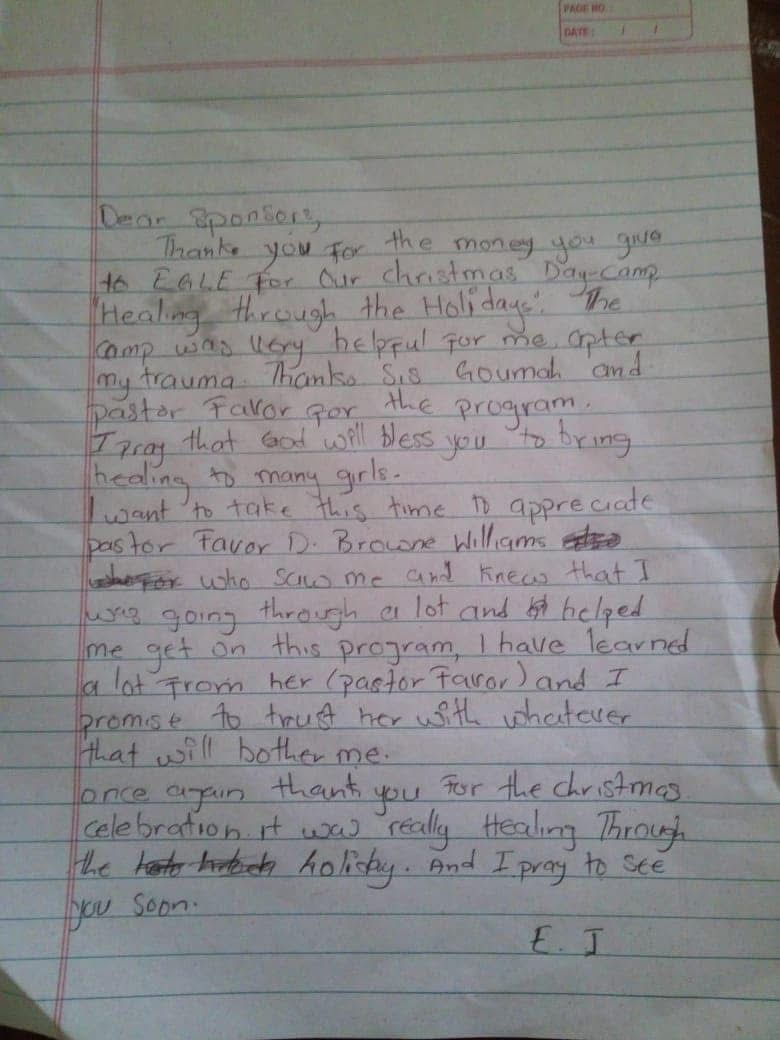 PAGE NO.:
DATE: / /
Dear Sponsors,
Thanks you for the money you give
to EGLE for Our christmas Day-Camp
"Healing through the Holidays". The
camp was very helpful for me, after
my trauma. Thanks Sis Goumah and
pastor Favor for the program.
I pray that God will bless you to bring
healing to many girls.
I want to take this time to appreciate
pastor Favor D. Browne Williams
who saw me and knew that I
was going through a lot and helped
me get on this program, I have learned
a lot from her (pastor Favor) and I
promise to trust her with whatever
that will bother me.
once again thank you For the christmas
celebration. it was really Healing Through
the holiday. And I pray to see
you soon.
E. J